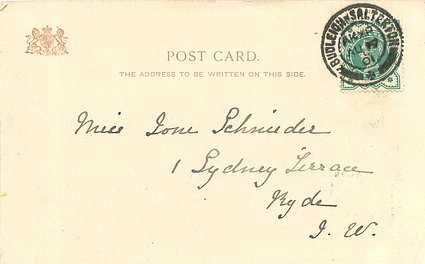 POST CARD.
THE ADDRESS TO BE WRITTEN ON THIS SIDE.
BUDLEIGH-SALTERTON
01
Miss Ione Schnieder
1 Sydney Terrace
Ryde
I. W.